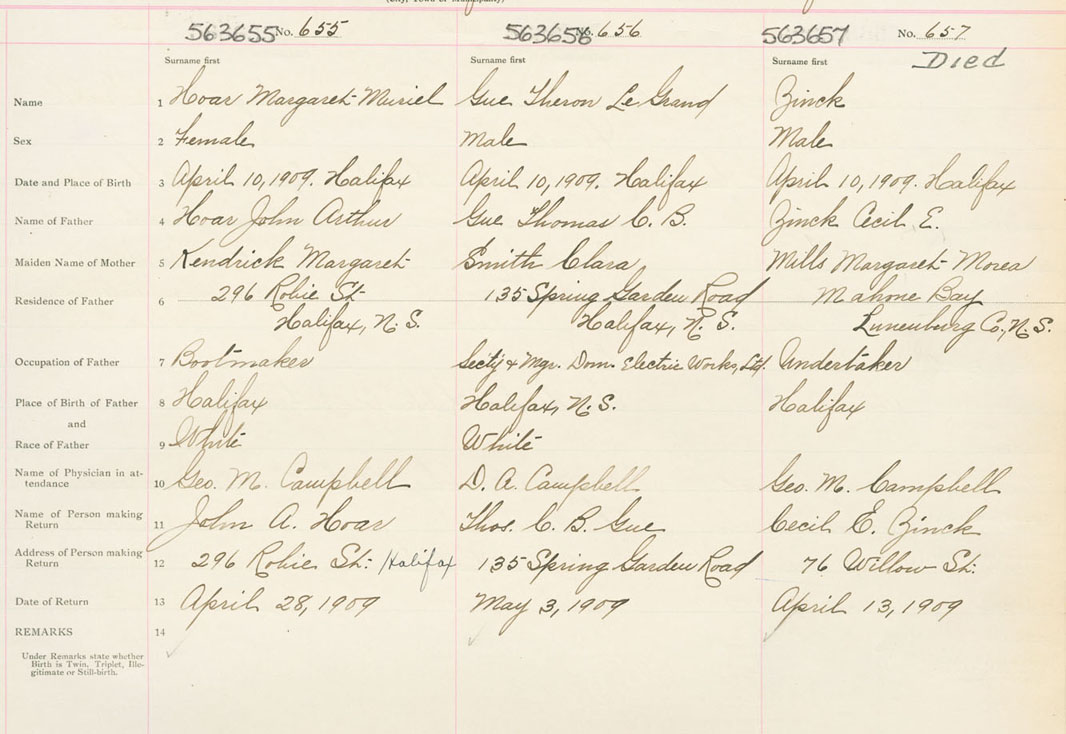 (City, Town or Municipality)
563655 No. 655 563656 No. 656 563657 No. 657
Died
Surname first Surname first Surname first
Name 1 Hoar Margaret Muriel Gue Theron Le Grand Zinck
Sex 2 Female Male Male
Date and Place of Birth 3 April 10, 1909. Halifax April 10, 1909. Halifax April 10, 1909. Halifax
Name of Father 4 Hoar John Arthur Gue Thomas C. B. Zinck Cecil E.
Maiden Name of Mother 5 Kendrick Margaret Smith Clara Mills Margaret Morea
Residence of Father 6 296 Robie St. 135 Spring Garden Road Mahone Bay
Halifax, N. S. Halifax, N. S. Lunenburg Co., N. S.
Occupation of Father 7 Bootmaker Secty & Mgr. Dom. Electric Works, Ltd. Undertaker
Place of Birth of Father 8 Halifax Halifax, N. S. Halifax
and
Race of Father 9 White White
Name of Physician in at-
tendance 10 Geo. M. Campbell D. A. Campbell Geo. M. Campbell
Name of Person making
Return 11 John A. Hoar Thos. C. B. Gue Cecil E. Zinck
Address of Person making
Return 12 296 Robie St. Halifax 135 Spring Garden Road 76 Willow St.
Date of Return 13 April 28, 1909 May 3, 1909 April 13, 1909
REMARKS 14
Under Remarks state whether
Birth is Twin, Triplet, Ille-
gitimate or Still-birth.